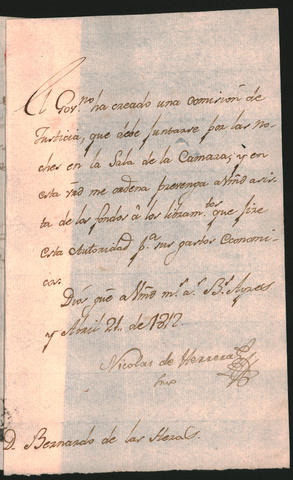 El Gov.no ha creado una comision de
Justicia, que debe juntarse por las no-
ches en la Sala de la Camara; y en
esta vrd me ordena prevenga a Vmd asis-
ta de los fondos â los libram.tos que jire
esta Autoridad p.a sus gastos Economi-
cos.
Dios gué a Vmd m.s a.s B.s Ayres
y Abril 21 de 1812.
Nicolas de Herrera
D. Bernardo de las Heras.